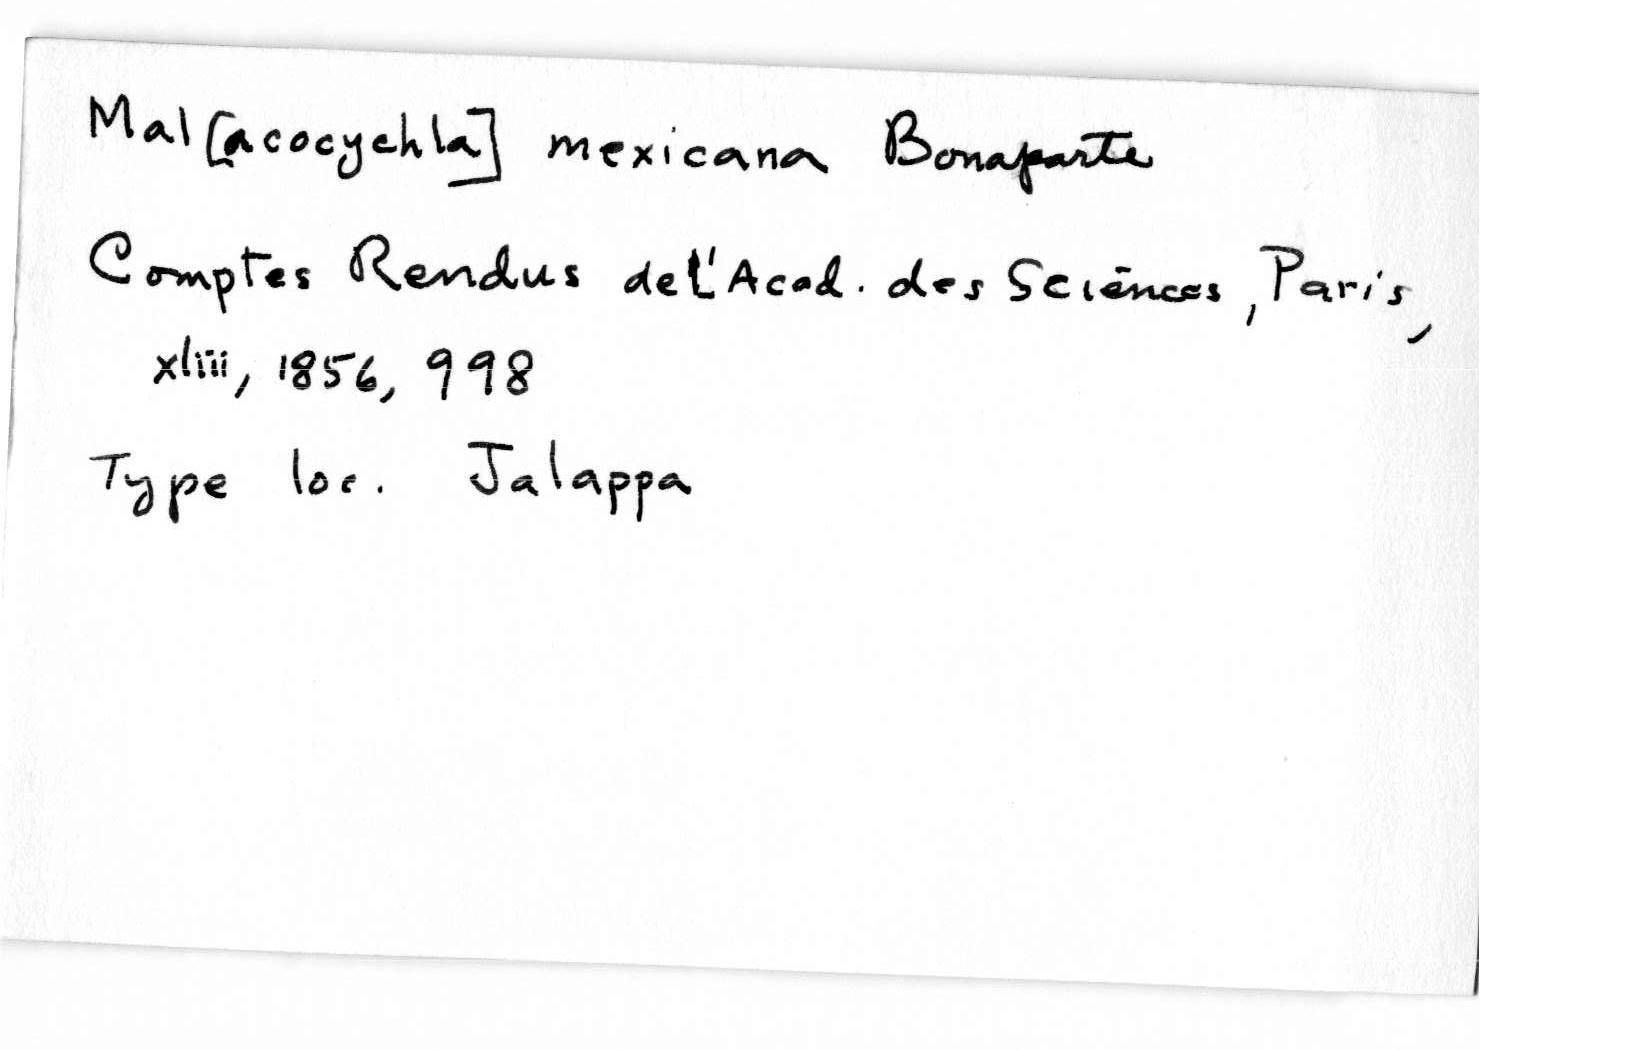 Mal[acocychla] mexicana Bonaparte
Comptes Rendus de l'Acad. des Sciences, Paris,
xliii, 1856, 998
Type loc. Jalappa